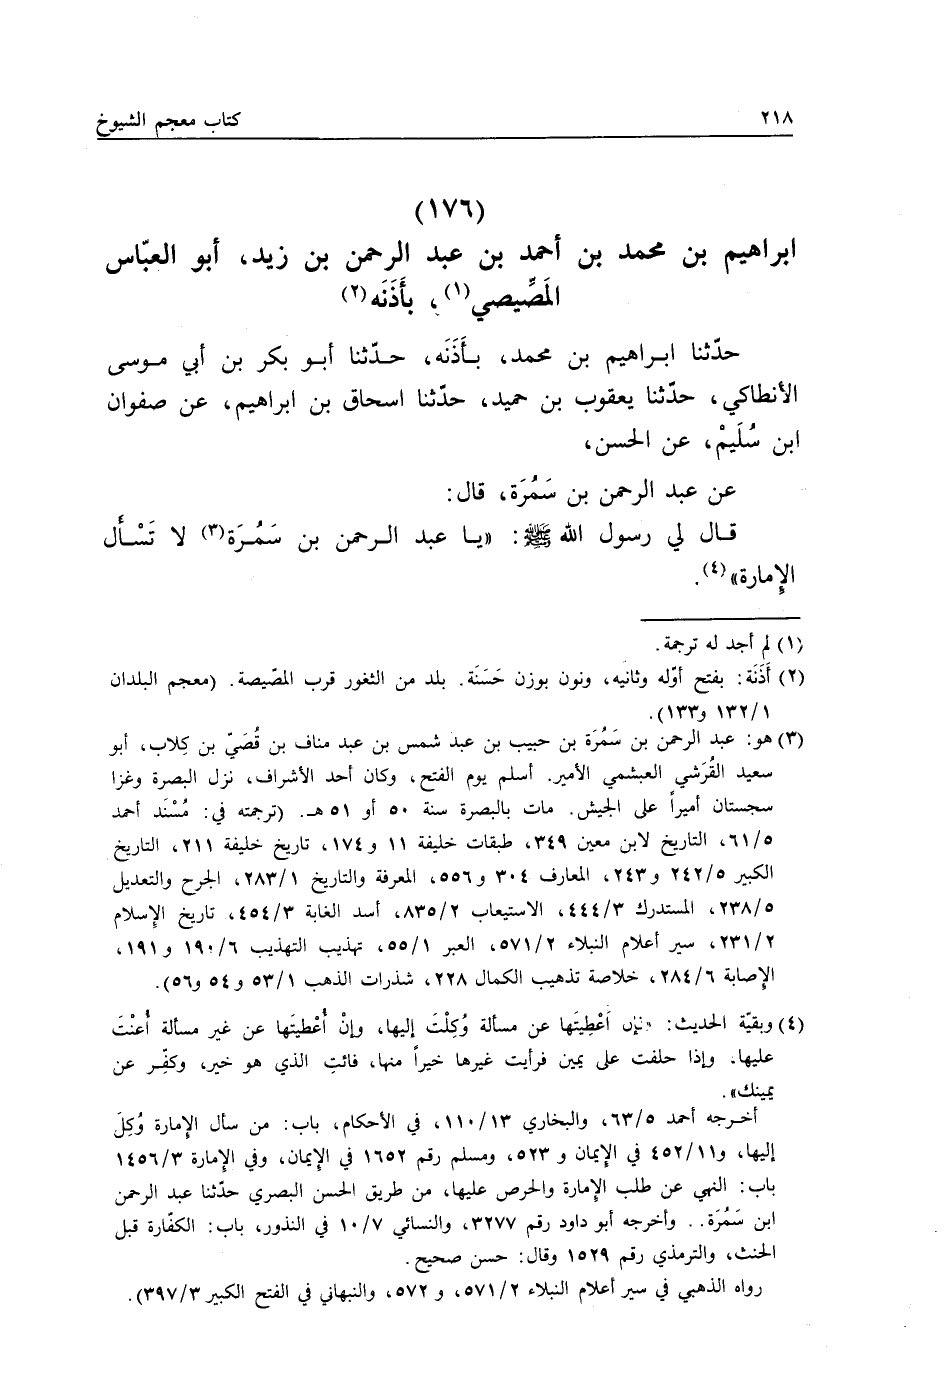 ٢١٨ كتاب معجم الشيوخ
(١٧٦)
ابراهيم بن محمد بن أحمد بن عبد الرحمن بن زيد، أبو العبّاس
المَصِّيصي(١)، بأَذَنَه(٢)
حدّثنا ابراهيم بن محمد، بأَذَنَه، حدّثنا أبو بكر بن أبي موسى
الأنطاكي، حدّثنا يعقوب بن حميد، حدّثنا اسحاق بن ابراهيم، عن صفوان
ابن سُلَيمْ، عن الحسن،
عن عبد الرحمن بن سَمُرَة، قال:
قال لي رسول الله ﷺ: «يا عبد الرحمن بن سَمُرَة(٣) لا تَسْأَل
الإمارة»(٤).
(١) لم أجد له ترجمة.
(٢) أَذَنَة: بفتح أوّله وثانيه، ونون بوزن حَسَنَة. بلد من الثغور قرب المصّيصة. (معجم البلدان
١٣٢/١ و١٣٣).
(٣) هو: عبد الرحمن بن سَمُرَة بن حبيب بن عبد شمس بن عبد مناف بن قُصَيّ بن كِلاب، أبو
سعيد القُرَشي العبشمي الأمير. أسلم يوم الفتح، وكان أحد الأشراف، نزل البصرة وغزا
سجستان أميراً على الجيش. مات بالبصرة سنة ٥٠ أو ٥١ هـ. (ترجمته في: مُسْنَد أحمد
٦١/٥، التاريخ لابن معين ٣٤٩، طبقات خليفة ١١ و١٧٤، تاريخ خليفة ٢١١، التاريخ
الكبير ٢٤٢/٥ و٢٤٣، المعارف ٣٠٤ و٥٥٦، المعرفة والتاريخ ٢٨٣/١، الجرح والتعديل
٢٣٨/٥، المستدرك ٤٤٤/٣، الاستيعاب ٨٣٥/٢، أسد الغابة ٤٥٤/٣، تاريخ الإسلام
٢٣١/٢، سير أعلام النبلاء ٥٧١/٢، العبر ٥٥/١، تهذيب التهذيب ١٩٠/٦ و١٩١،
الإصابة ٢٨٤/٦، خلاصة تذهيب الكمال ٢٢٨، شذرات الذهب ٥٣/١ و٥٤ و٥٦).
(٤) وبقيّة الحديث: «فإن أعْطِيتَها عن مسألة وُكِلْتَ إليها، وإنْ أُعْطيتَها عن غير مسألة أُعنْتَ
عليها. وإذا حلفت على يمين فرأيت غيرها خيراً منها، فائتِ الذي هو خير، وكفِّر عن
يمينك».
أخرجه أحمد ٦٣/٥، والبخاري ١١٠/١٣، في الأحكام، باب: من سأل الإمارة وُكِلَ
إليها، و٤٥٢/١١ في الإيمان و ٥٢٣، ومسلم رقم ١٦٥٢ في الإيمان، وفي الإمارة ١٤٥٦/٣
باب: النهي عن طلب الإمارة والحرص عليها، من طريق الحسن البصري حدّثنا عبد الرحمن
ابن سَمُرَة.. وأخرجه أبو داود رقم ٣٢٧٧، والنسائي ١٠/٧ في النذور، باب: الكفّارة قبل
الحنث، والترمذي رقم ١٥٢٩ وقال: حسن صحيح.
رواه الذهبي في سير أعلام النبلاء ٥٧١/٢، و ٥٧٢، والنبهاني في الفتح الكبير ٣٩٧/٣).